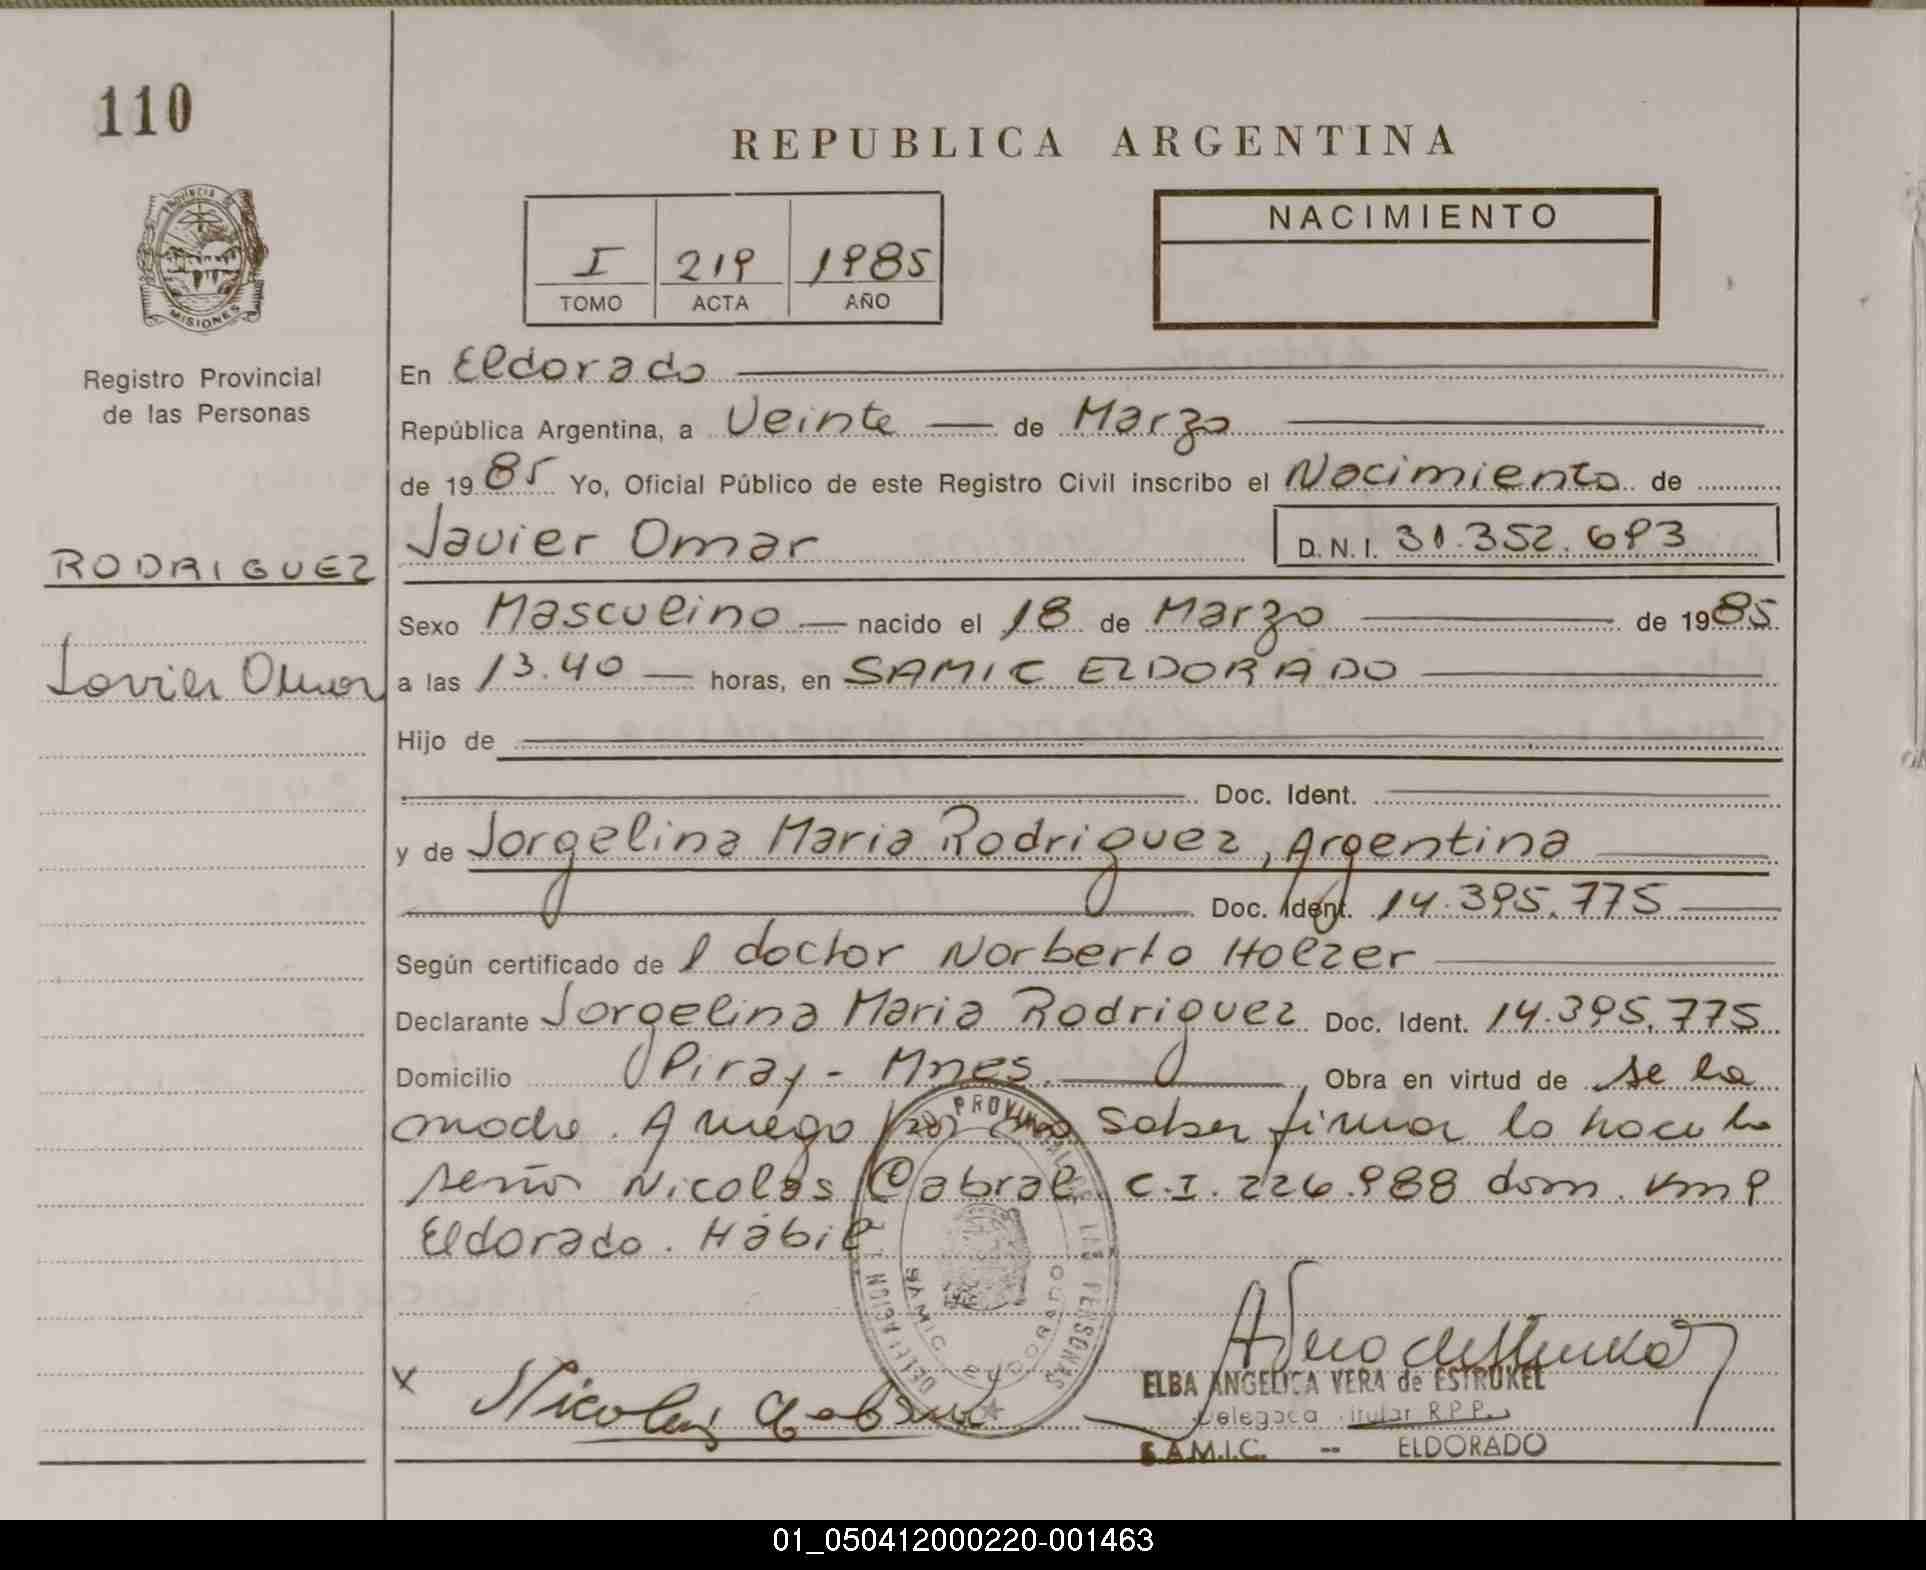 110
REPUBLICA ARGENTINA
PROVINCIA DE
MISIONES
Registro Provincial
de las Personas
I 219 1985
TOMO ACTA AÑO
NACIMIENTO
En Eldorado
República Argentina, a Veinte de Marzo
de 1985 Yo, Oficial Público de este Registro Civil inscribo el Nacimiento de
Javier Omar D.N.I. 31.352.693
RODRIGUEZ
Javier Omar
Sexo Masculino nacido el 18 de Marzo de 1985
a las 13.40 horas, en SAMIC ELDORADO
Hijo de
Doc. Ident.
y de Jorgelina Maria Rodriguez, Argentina
Doc. Ident. 14.395.775
Según certificado del doctor Norberto Holzer
Declarante Jorgelina Maria Rodriguez Doc. Ident. 14.395.775
Domicilio Piray - Mnes. Obra en virtud de se la
madre. A ruego por no saber firmar lo hace la
señor Nicolás Cabral C.I. 226.988 dom. Km 9
Eldorado. Hábil
PROVINCIAL DE LAS PERSONAS
SAMIC ELDORADO
x Nicolas Cabral
ELBA ANGELICA VERA de ESTRUKEL
Delegada Titular R.P.P.
S.A.M.I.C. -- ELDORADO
01_050412000220-001463